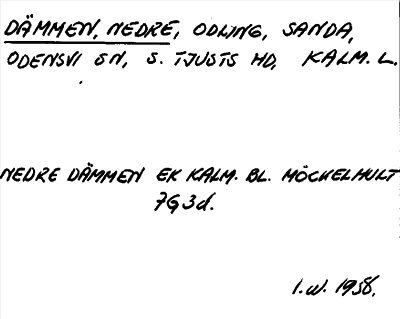 DÄMMEN, NEDRE, ODLING, SANDA,
ODENSVI SN, S. TJUSTS HD, KALM. L.
NEDRE DÄMMEN EK KALM. BL. MÖCKELHULT
7G3d.
I.W. 1958.